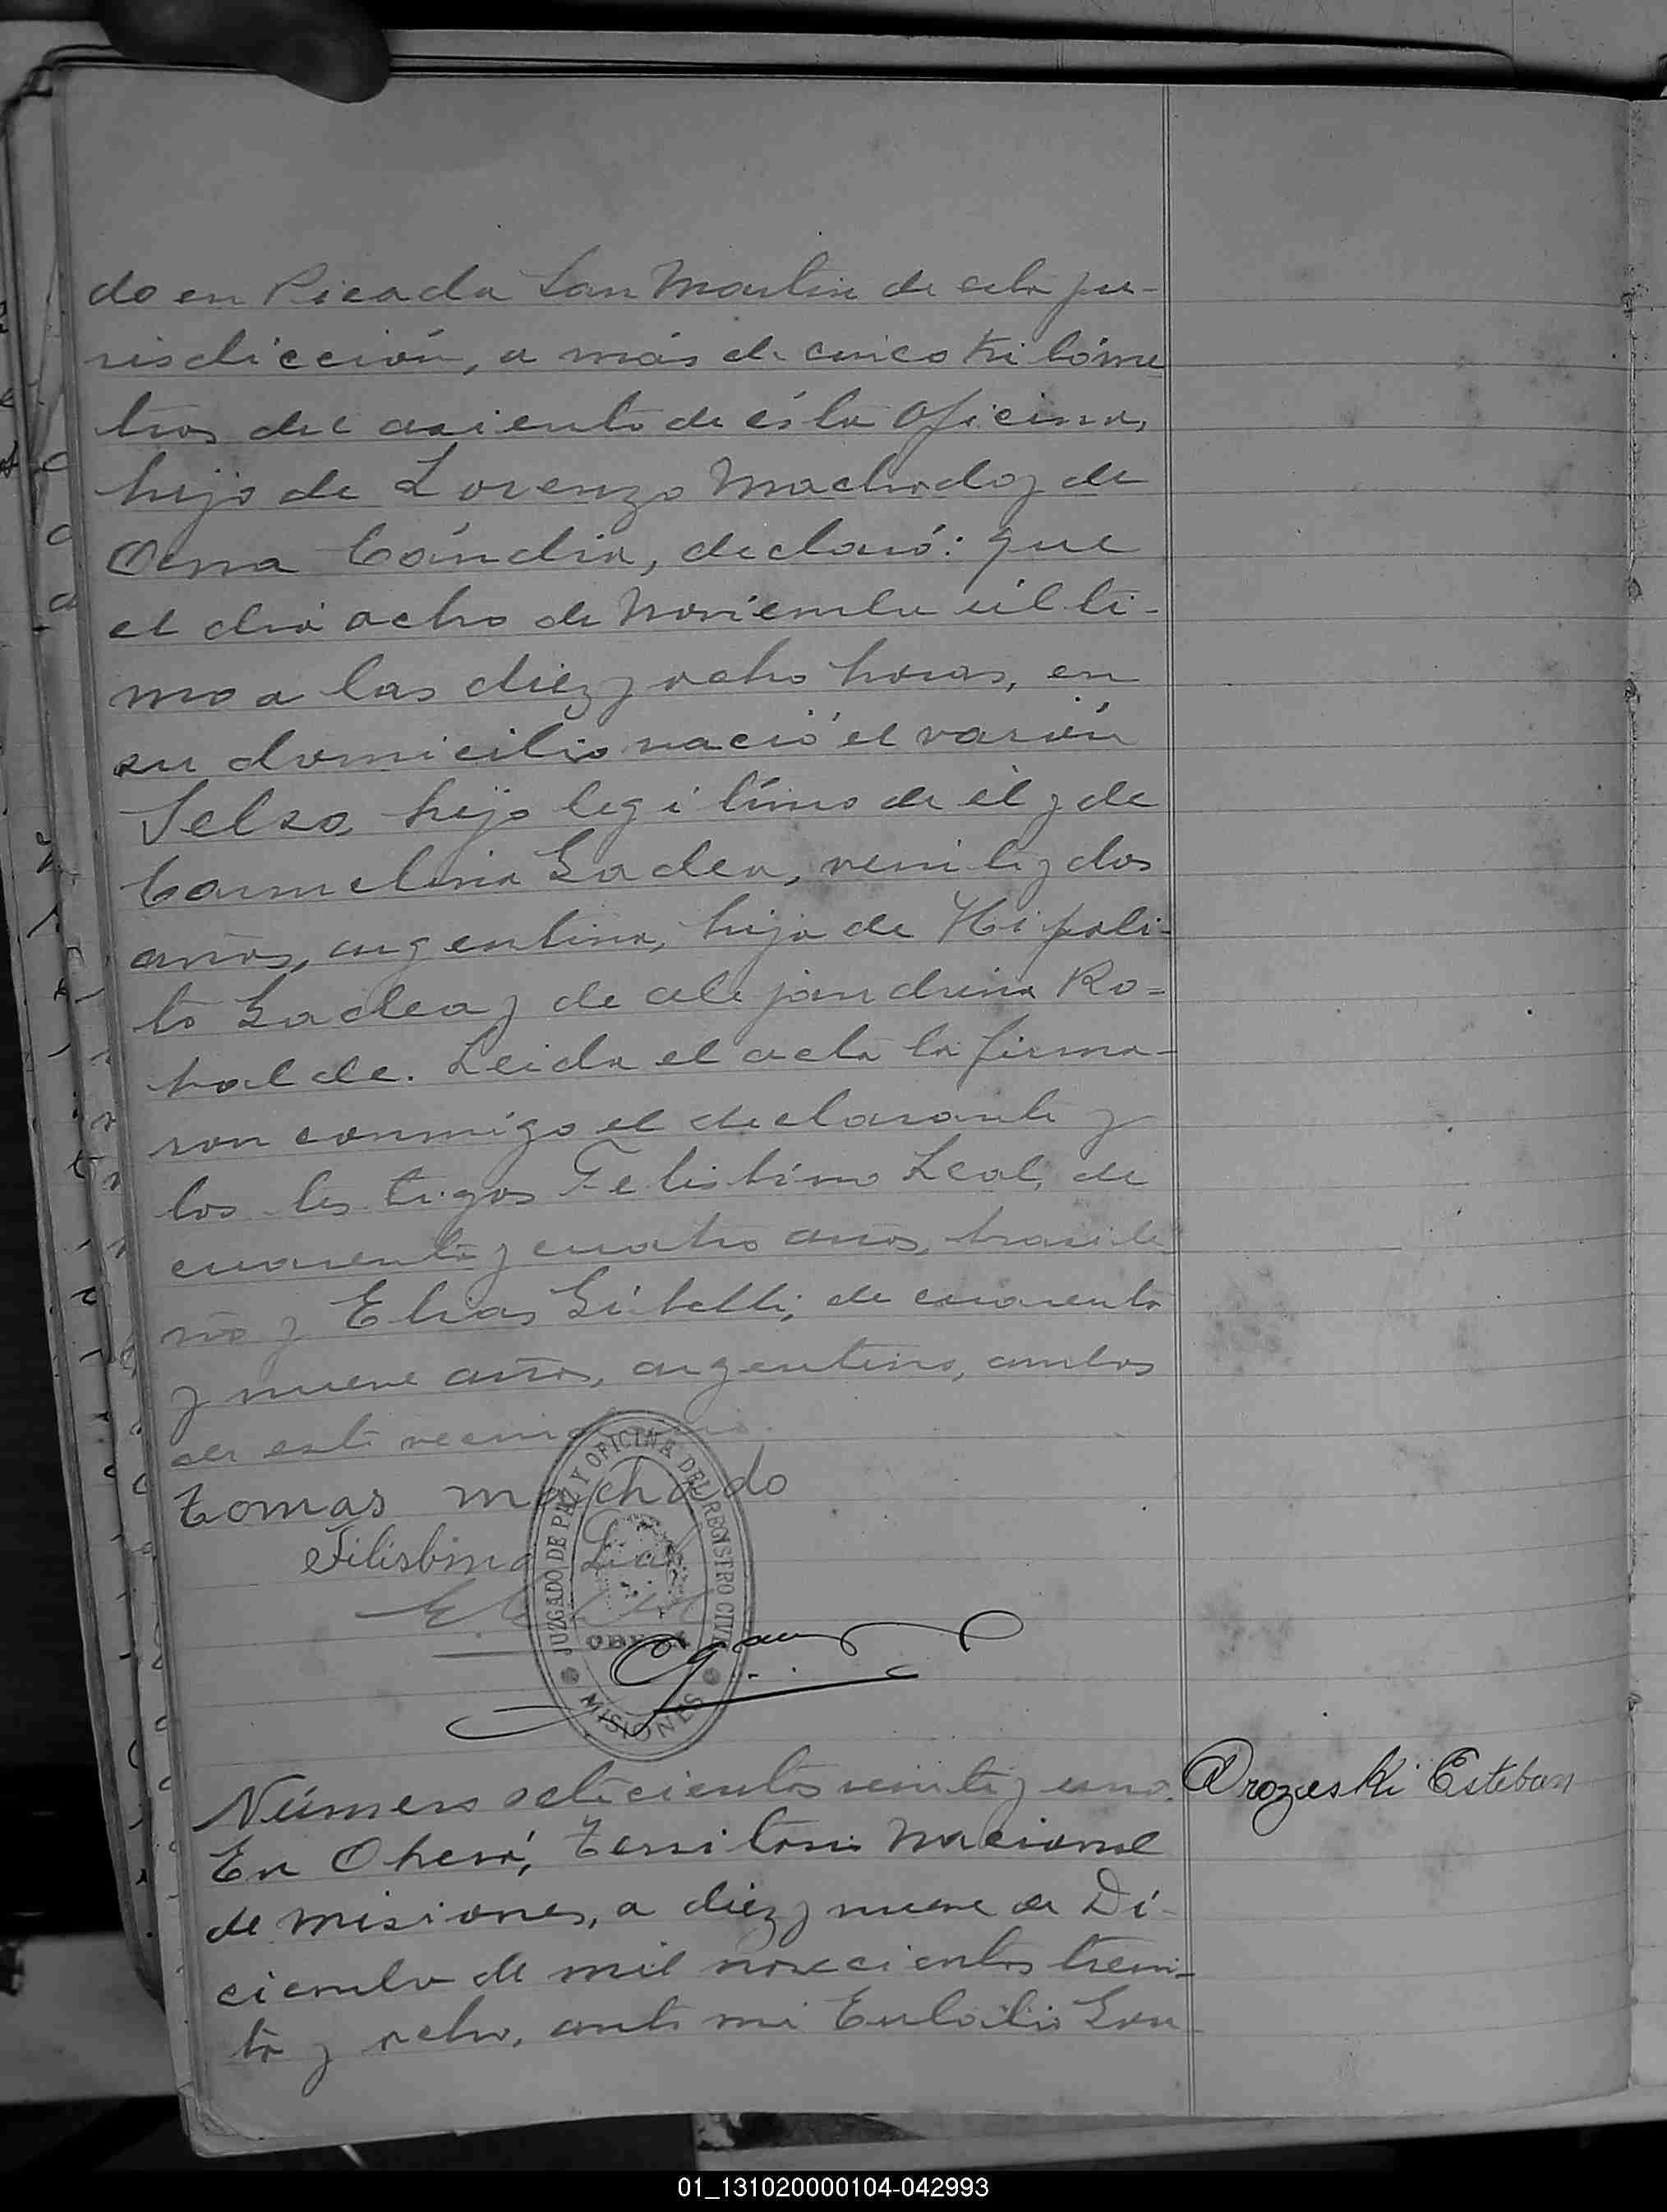 do en Picada San Martin de esta ju-
risdicción, a más de cinco kilóme
tros del asiento de ésta Oficina,
hijo de Lorenzo Machado y de
Cándia, declaró: que
el dia ocho de Noviembre últi-
mo a las diez y ocho horas, en
su domicilio nació el varón
Selso, hijo legítimo de él y de
Carmelina Gadea, veinti y dos
años, argentina, hija de Hipóli-
to Gadea y de Alejandrina Ro-
balde. Leida el acta la firma-
ron conmigo el declarante y
los testigos Felisbino Leal, de
cuarenta y cuatro años, brasile
ño y Elias Gibelli, de cuarenta
y nueve años, argentino, ambos
de este vecindario.
Tomas machado
Filisbino Leal
JUZGADO DE PAZ Y OFICINA DEL REGISTRO CIVIL
OBERÁ
MISIONES
Número setecientos veinte y uno.
Drozeski Esteban
En Oberá, Territorio Nacional
de Misiones, a diez y nueve de Di-
ciembre de mil novecientos trein-
ta y ocho, ante mi Eulalio Gon
01_131020000104-042993